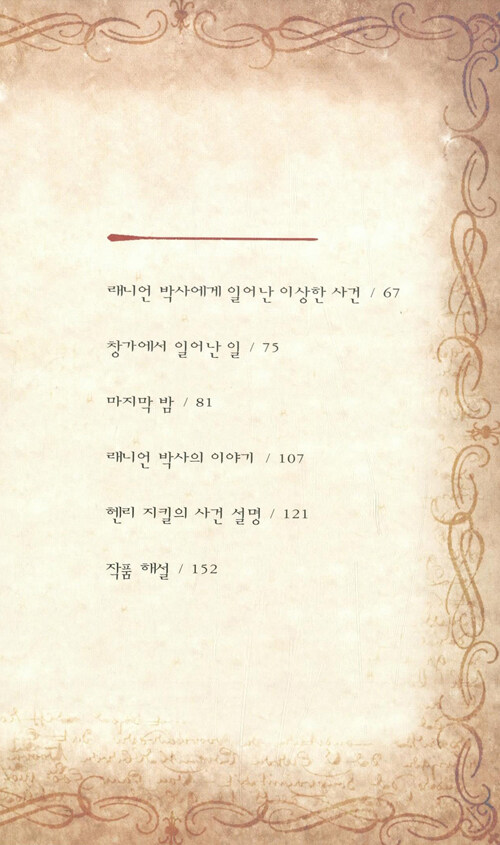 래니언 박사에게 일어난 이상한 사건 / 67
창가에서 일어난 일 / 75
마지막 밤 / 81
래니언 박사의 이야기 / 107
헨리 지킬의 사건 설명 / 121
작품 해설 / 152